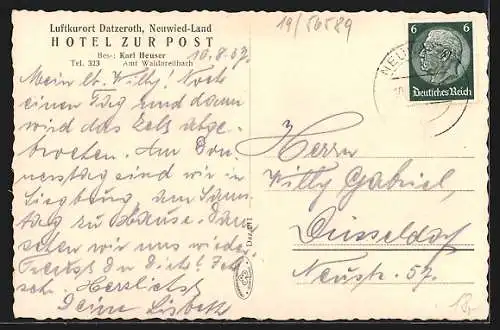 Luftkurort Datzeroth, Neuwied-Land
HOTEL ZUR POST
Bes.: Karl Heuser
Tel. 323 Amt Waldbreitbach
19/56589
10.8.37.
Mein lb. Willy! Noch
einen Tag und dann
wird das Zelt abge-
brochen. Am Don-
nerstag sind wir in
Siegburg, am Sams-
tag zu Hause. Dann
sehen wir uns wieder.
Freust Du Dich?
Herzlichst
Deine Lisbeth
6 6
Deutsches Reich
NEUW
Herrn
Willy Gabriel,
Düsseldorf
Neustr. 57.